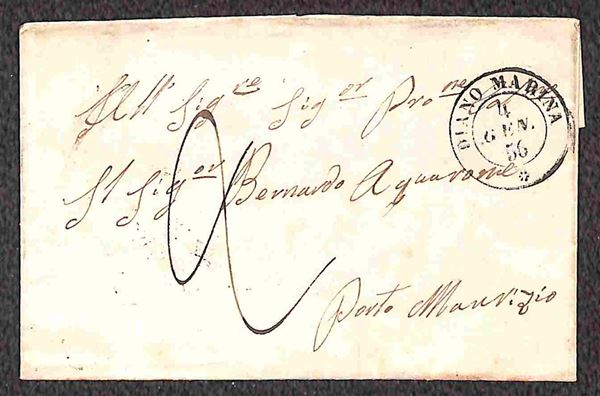 All'Ill Sigre Sigor Prone
Il Sigor Bernardo Aquarone
Porto Maurizio
2
DIANO MARINA
4
GEN.
56